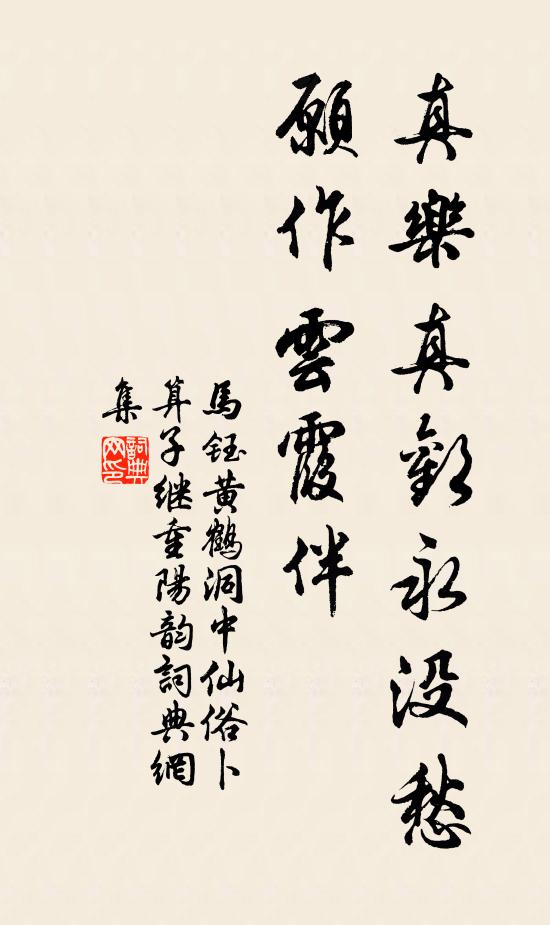 真樂真歡永没愁
願作雲霞伴
馬鈺黄鶴洞中仙俗卜
算子继重陽韵詞典網
集
詞典
网印